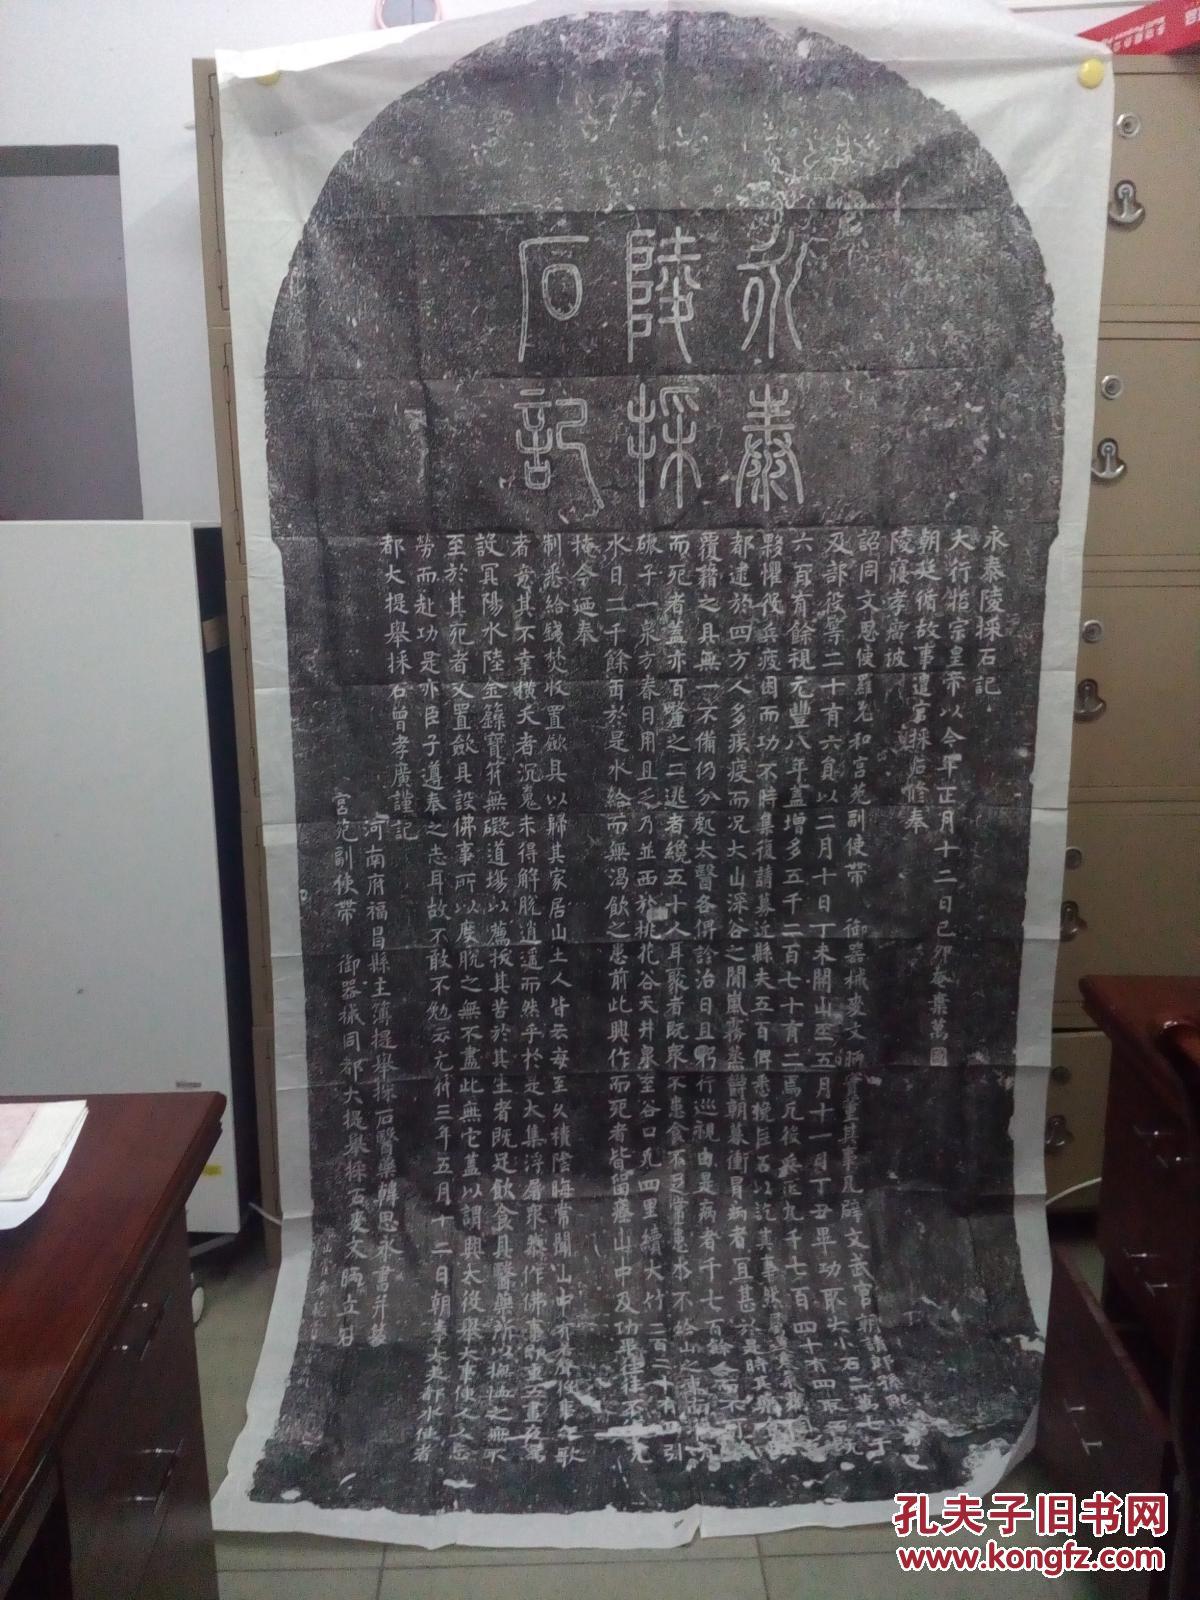 永泰
陵採
石記
永泰陵採石記
大行哲宗皇帝以今年正月十二日己卯奄棄萬國
朝廷循故事遣官採石修奉
陵寢孝廣被
詔同文思使羅允和宮苑副使帶 御器械麥文昞董其事凡辟文武官朝請郎
及部役等二十有六員以二月十日丁未開山至五月十一日丁丑畢功取大小石二萬七千
六百有餘視元豐八年蓋增多五千二百七十有二焉凡役兵匠九千七百四十有四
夥懼役兵疲困而功不時集復請募近縣夫五百俾悉挽巨石以訖其事然
都逮於四方人多疾疫而況大山深谷之間嵐霧蒸鬱朝暮衝冒病者宜甚於是時其
覆藉之具無一不備仍分處太醫各俾診治日且躬行巡視由是病者千七百餘
而死者蓋亦百釐之二逃者纔五十人耳眾者既眾不患食不足常患水不給山之東南
礮子一泉方春日用且乏乃並西於桃花谷天井泉至谷口凡四里續大竹二百二十有四引
水日二千餘斛於是水給而無渴飲之患前此興作而死者皆留瘞山中及功畢往往不
掩今廼奉
制悉給錢焚收置歛具以歸其家居山土人皆云每至久積陰晦常聞山中有
者意其不幸橫夭者沉魂未得解脫逍遙而然乎於是大集浮屠眾作佛事
設冥陽水陸金籙寶符無礙道場以薦拔其苦於其生者既是飲食具醫藥所以撫恤之無不
至於其死者又置歛具設佛事所以度脫之無不盡此無它蓋以謂興大役舉大事使人人忘
勞而赴功是亦臣子遵奉之志耳故不敢不勉云元符三年五月十二日朝奉大夫都水使者
都大提舉採石曾孝廣謹記
河南府福昌縣主簿提舉採石醫藥韓思永書并篆
宮苑副使帶 御器械同都大提舉採石麥文昞立石
孔夫子旧书网
www.kongfz.com